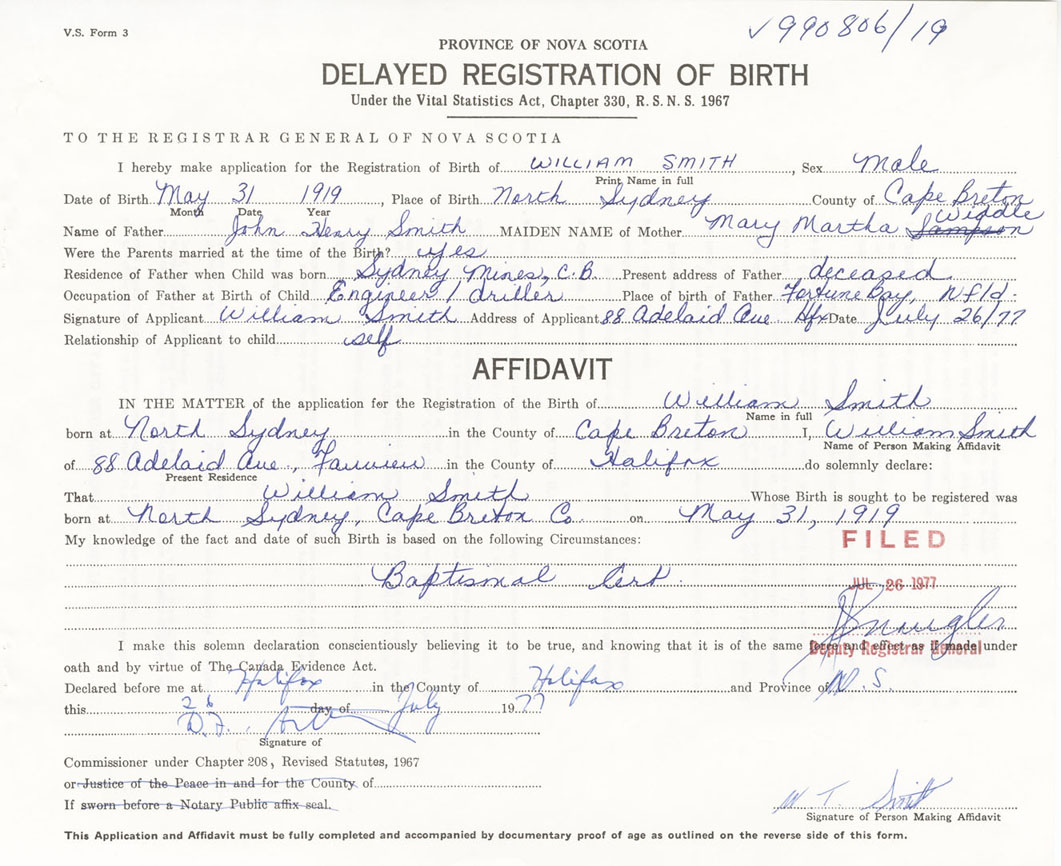 V.S. Form 3
√990806/19
PROVINCE OF NOVA SCOTIA
DELAYED REGISTRATION OF BIRTH
Under the Vital Statistics Act, Chapter 330, R.S.N.S. 1967
TO THE REGISTRAR GENERAL OF NOVA SCOTIA
I hereby make application for the Registration of Birth of WILLIAM SMITH, Sex Male
Print Name in full
Date of Birth May 31 1919, Place of Birth North Sydney County of Cape Breton
Month Date Year
Widdle
Name of Father John Henry Smith MAIDEN NAME of Mother Mary Martha Sampson
Were the Parents married at the time of the Birth? yes
Residence of Father when Child was born Sydney Mines, C.B. Present address of Father deceased
Occupation of Father at Birth of Child Engineer / driller Place of birth of Father Fortune Bay, Nfld.
Signature of Applicant William Smith Address of Applicant 88 Adelaid Ave Hfx Date July 26/77
Relationship of Applicant to child self
AFFIDAVIT
IN THE MATTER of the application for the Registration of the Birth of William Smith
Name in full
born at North Sydney in the County of Cape Breton I, William Smith
Name of Person Making Affidavit
of 88 Adelaid Ave., Fairview in the County of Halifax do solemnly declare:
Present Residence
That William Smith Whose Birth is sought to be registered was
born at North Sydney, Cape Breton Co. on May 31, 1919
My knowledge of the fact and date of such Birth is based on the following Circumstances:
FILED
Baptismal Cert.
JUL 26 1977
I make this solemn declaration conscientiously believing it to be true, and knowing that it is of the same force and effect as if made under
Deputy Registrar General
oath and by virtue of The Canada Evidence Act.
Declared before me at Halifax in the County of Halifax and Province of N.S.
this 26 day of July 1977
D.F.
Signature of
Commissioner under Chapter 208, Revised Statutes, 1967
or Justice of the Peace in and for the County of
If sworn before a Notary Public affix seal.
W T. Smith
Signature of Person Making Affidavit
This Application and Affidavit must be fully completed and accompanied by documentary proof of age as outlined on the reverse side of this form.